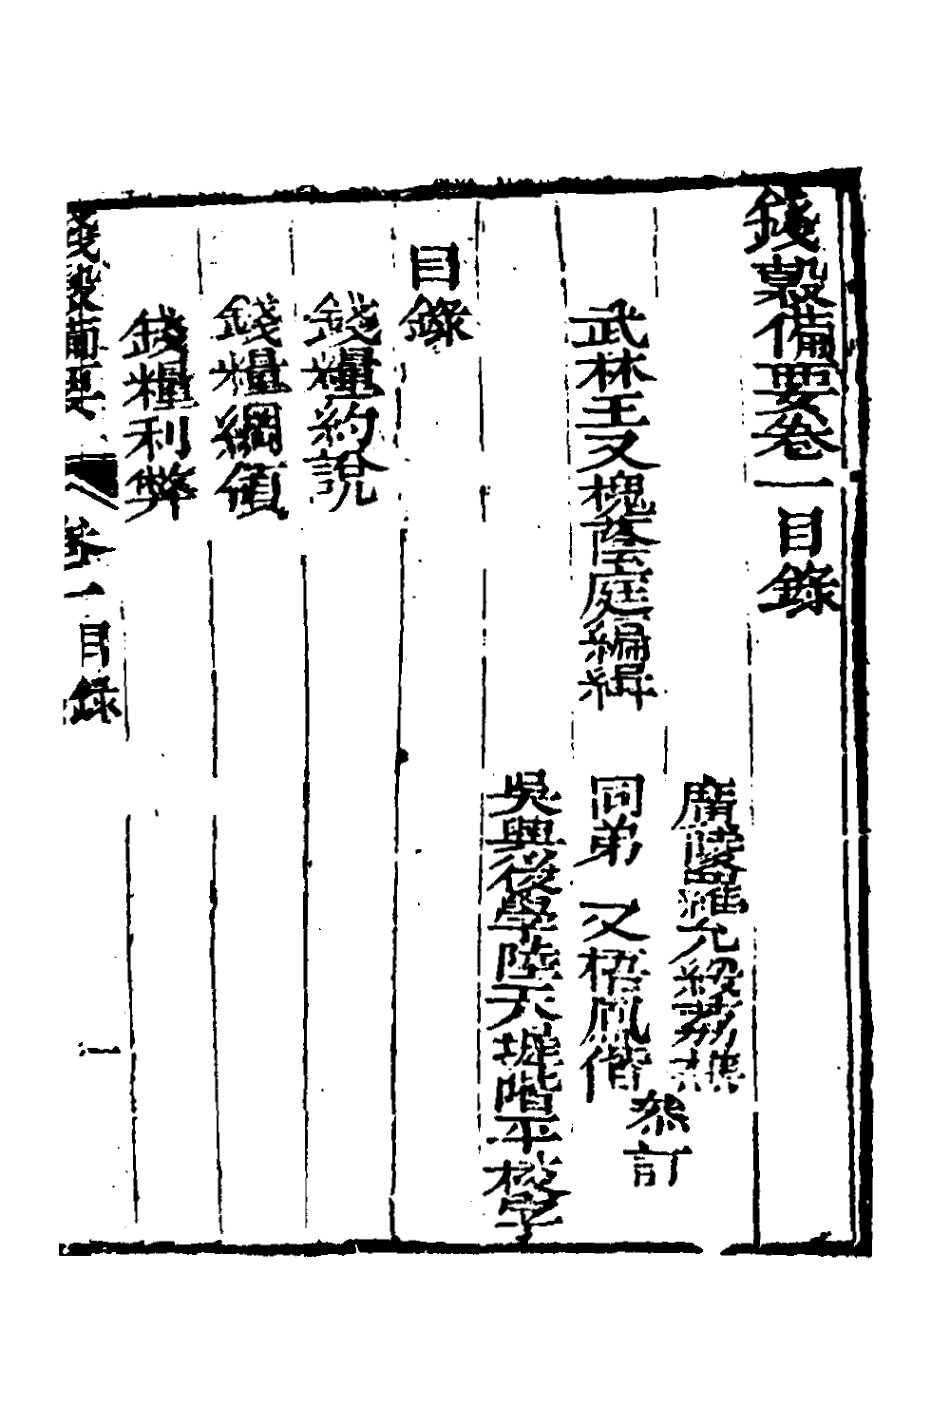 錢榖備要卷一目錄
廬陵羅允綏荔樵
武林王又槐蔭庭編輯
同弟 又梧鳳偕
叅訂
吳興後學陸天墀階平校字
目錄
錢糧約說
錢糧綱領
錢糧利弊
錢榖備要 卷一目錄 一